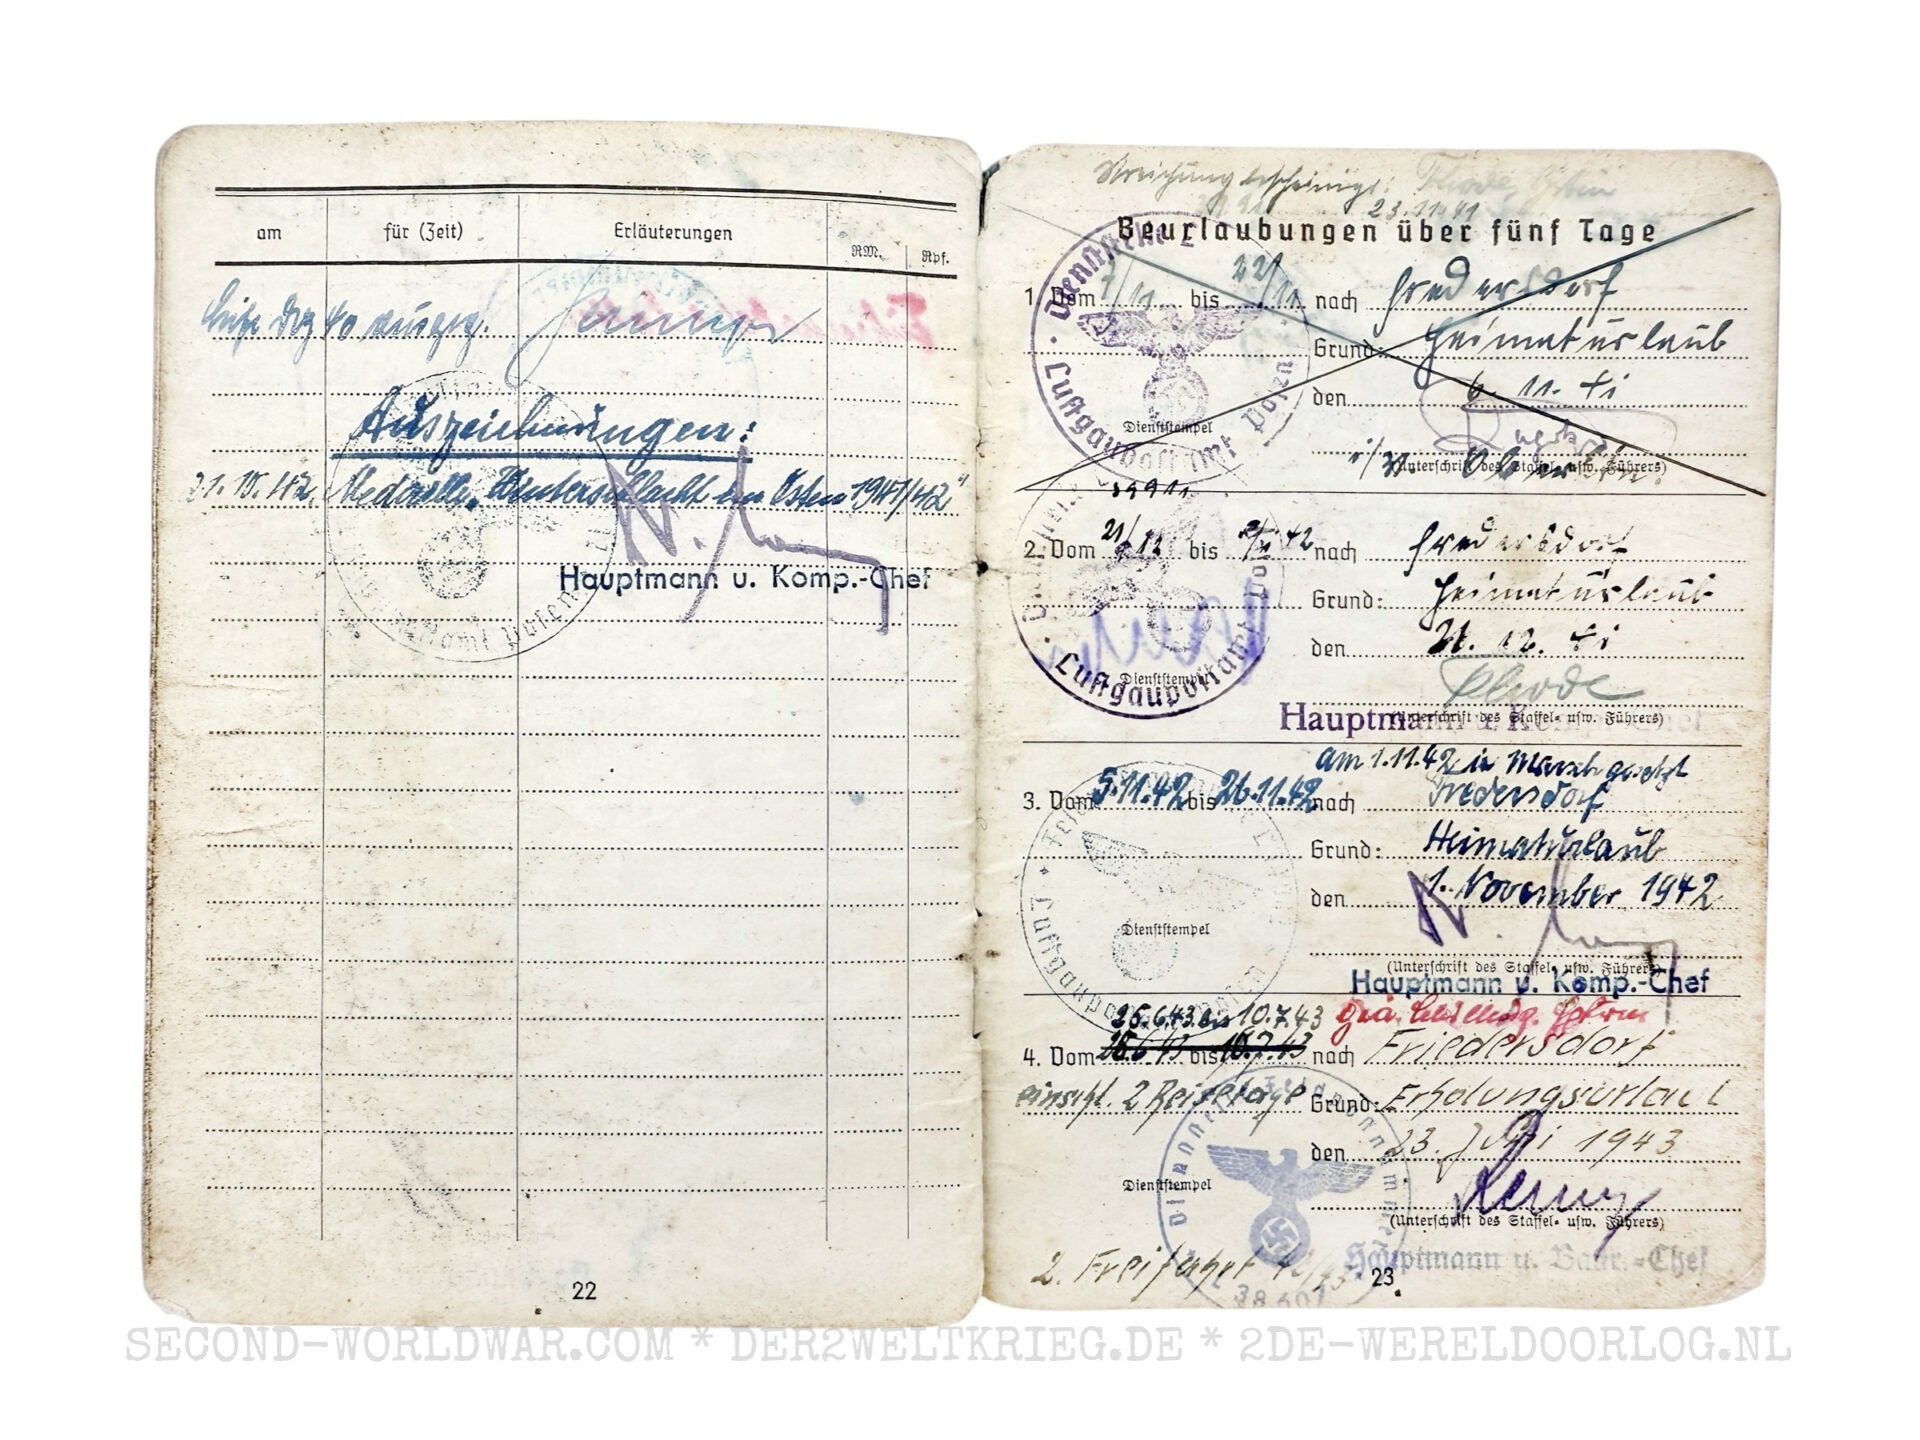 am
für (Zeit)
Erläuterungen
RM.
Rpf.
Auszeichnungen:
Medaille „Winterschlacht im Osten 1941/42"
Hauptmann u. Komp.-Chef
22
23.11.41
Beurlaubungen über fünf Tage
1. Vom 7/11 bis 22/11 nach Fredersdorf
Grund: Heimaturlaub
den 6. 11. 41
Dienststempel
(Unterschrift des Staffel- usw. Führers)
Luftgaupostamt Posen
2. Vom 21/12 bis 42 nach Fredersdorf
Grund: Heimaturlaub
den 21. 12. 41
Rhode
Dienststempel
Luftgaupostamt
Hauptmann u. K
(Unterschrift des Staffel- usw. Führers)
am 1.11.42 in Marsch gesetzt
3. Vom 5.11.42 bis 26.11.42 nach Fredersdorf
Grund: Heimaturlaub
den 1. November 1942
Dienststempel
(Unterschrift des Staffel- usw. Führers)
Hauptmann u. Komp.-Chef
26.6.43 bis 10.7.43
4. Vom bis 10.7.43 nach Friedersdorf
einschl. 2 Reisetage Grund: Erholungsurlaub
den 23. Juni 1943
Dienststempel
(Unterschrift des Staffel- usw. Führers)
Hauptmann u. Battr.-Chef
2. Freifahrt 42/43
23
SECOND-WORLDWAR.COM * DER2WELTKRIEG.DE * 2DE-WERELDOORLOG.NL